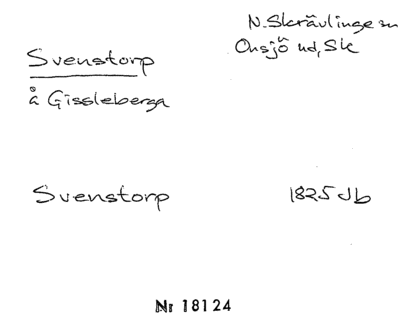 N. Skrävlinge sn
Onsjö hd, Sk
Svenstorp
å Gissleberga
Svenstorp 1825 Jb
Nr 18124